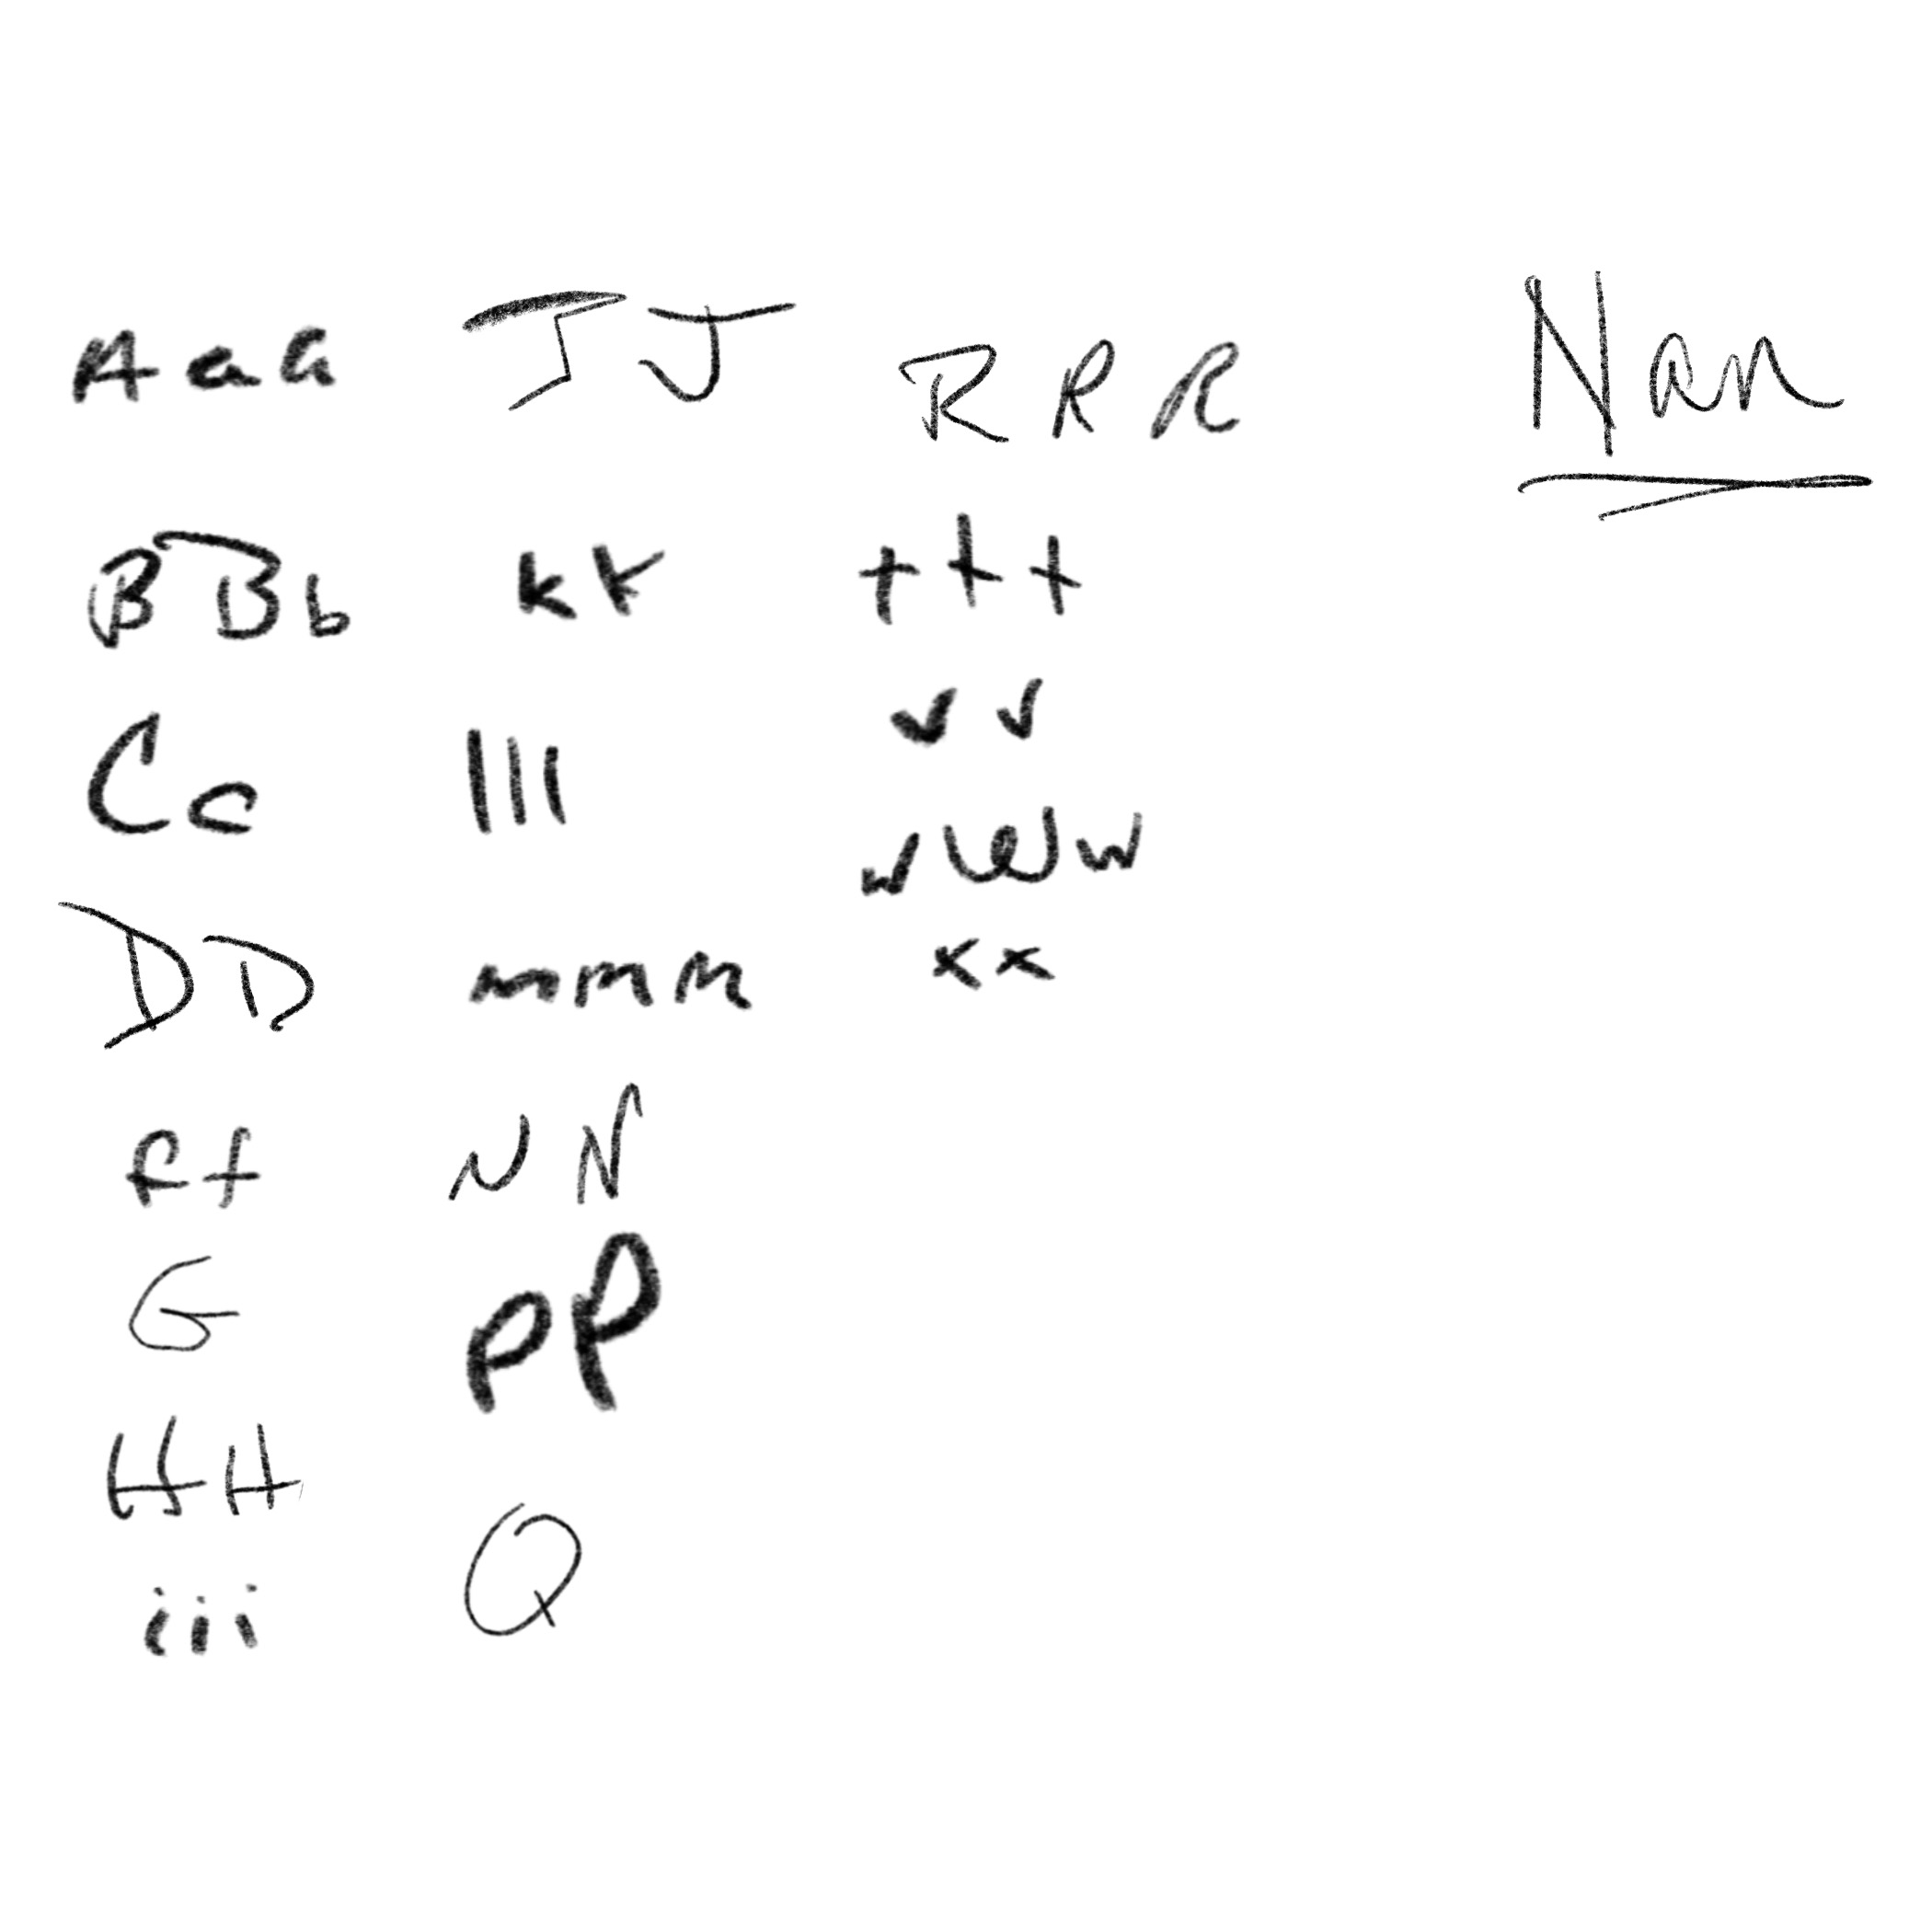 A a a
B B b
C c
D D
f f
G
H H
i i i
J J
k k
l l l
m m m
N N
P P
Q
R R R
t t t
v v
w W w
x x
Nan